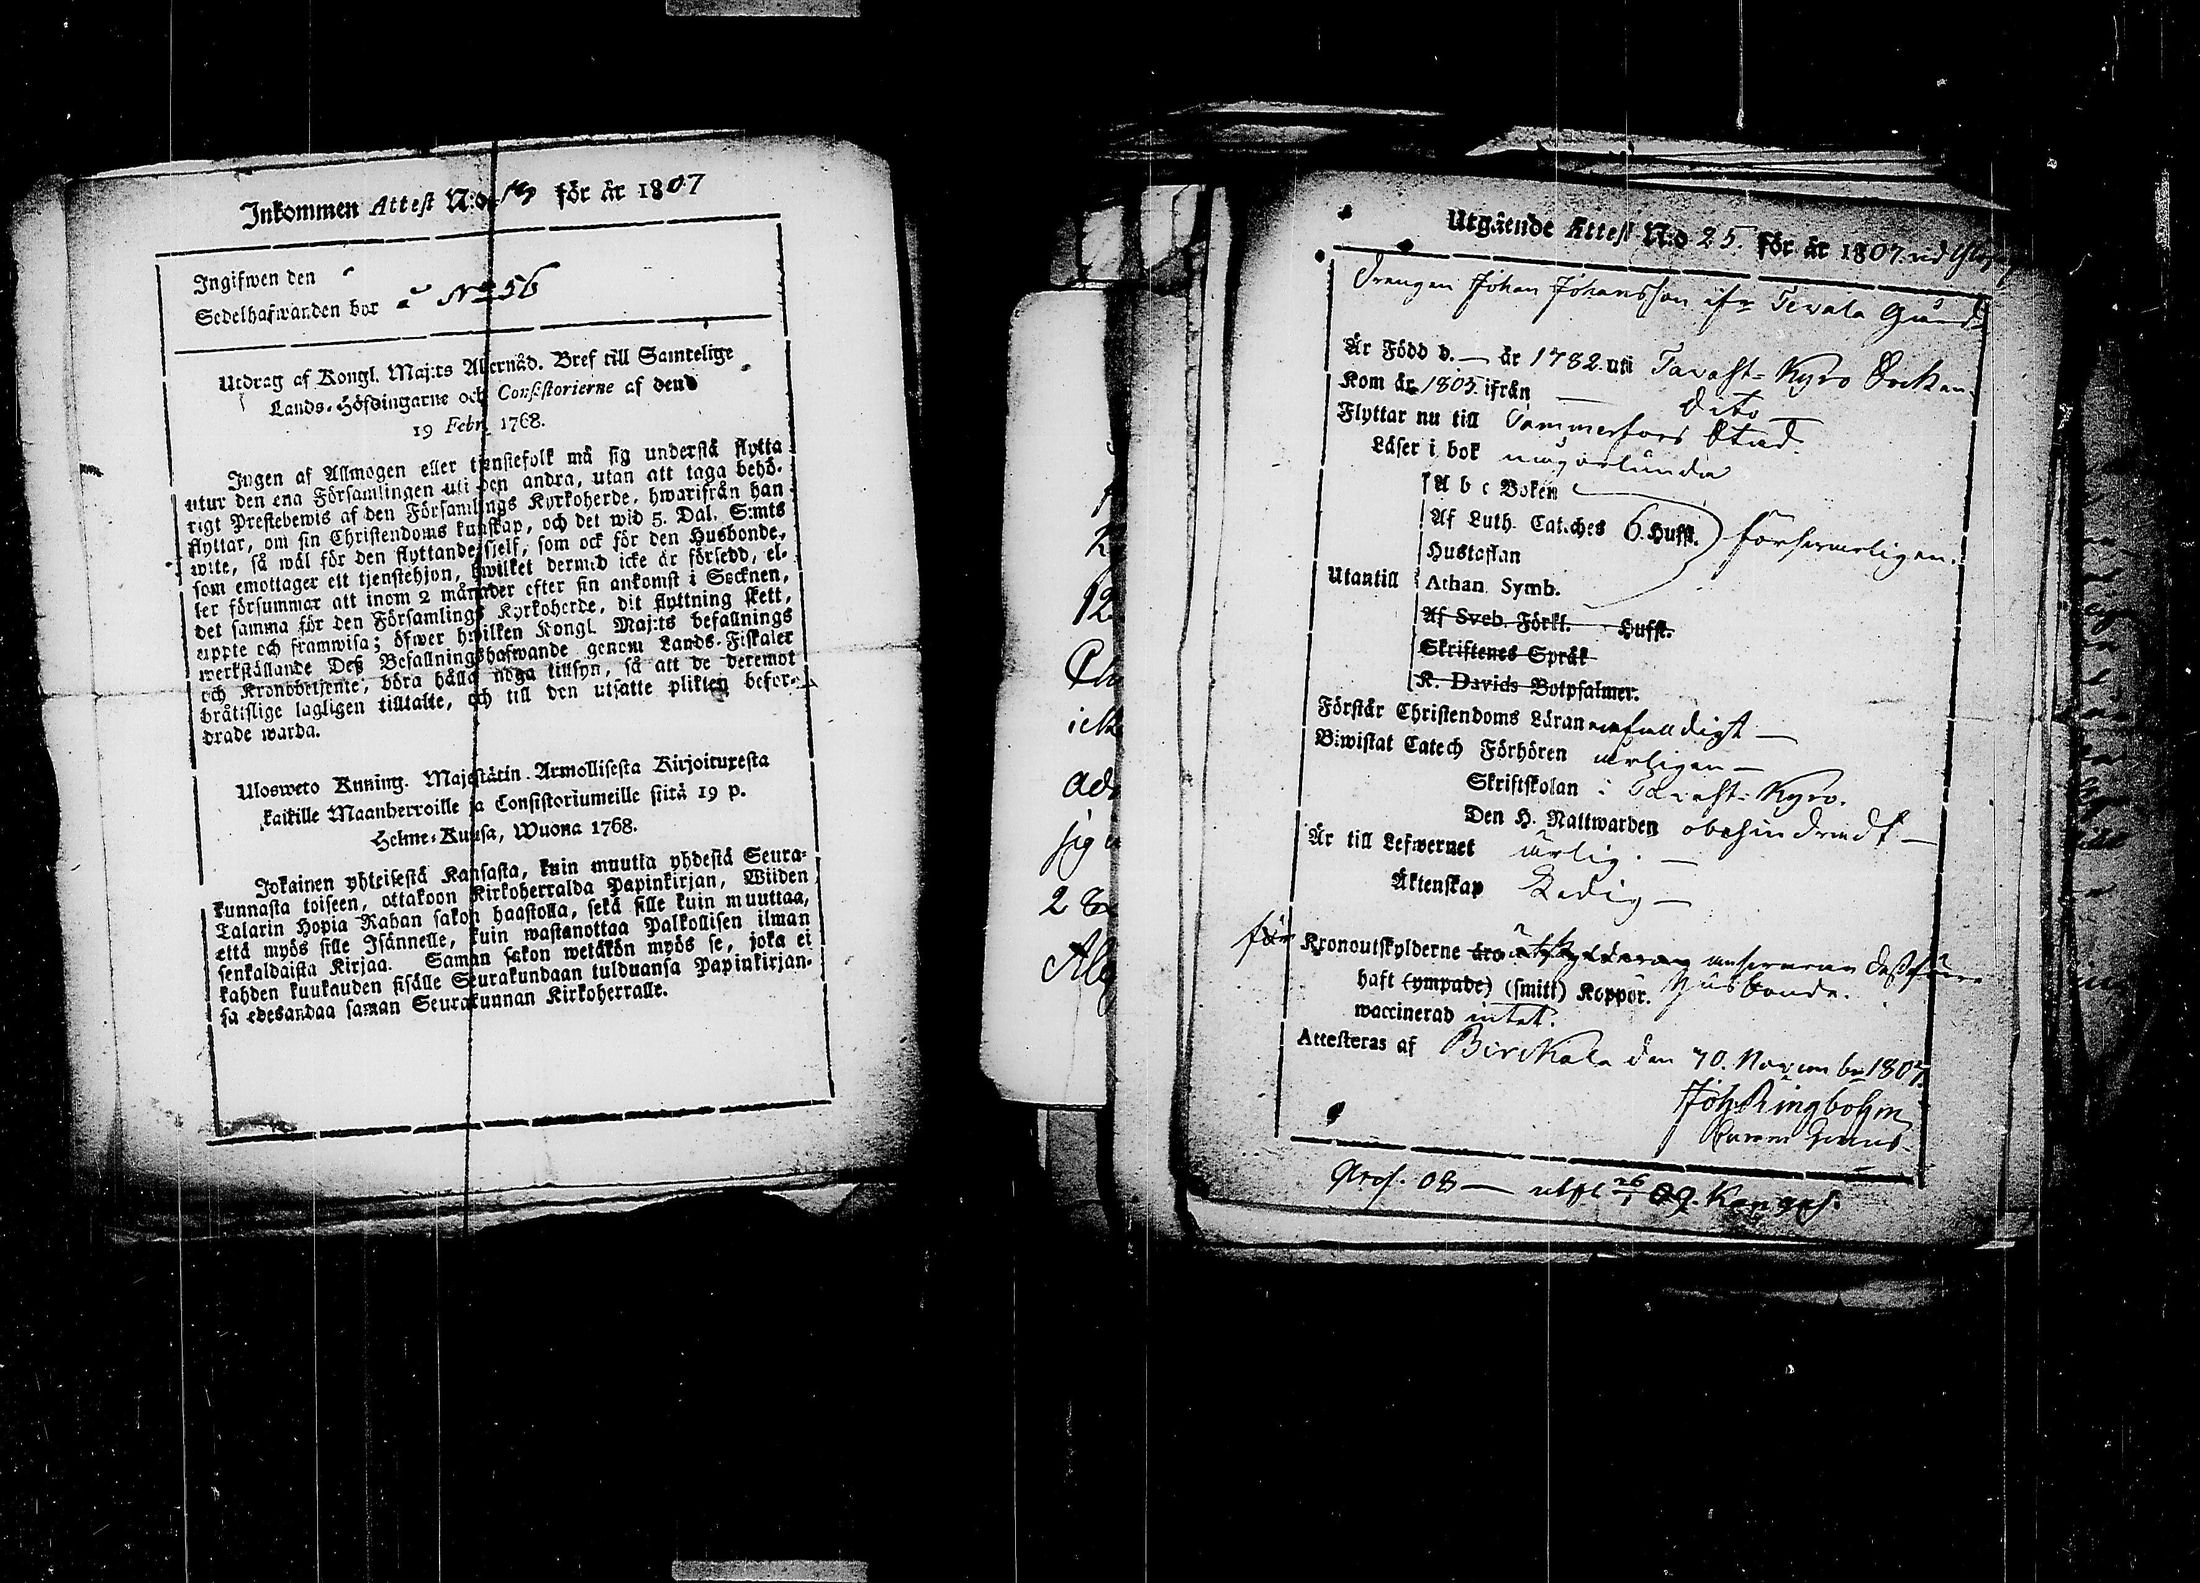 Inkommen Attest N:o för år 1807
Ingifwen den
Sedelhafwanden bor å No 56
Utdrag af Kongl. Maj:ts Allernåd. Bref till Samtelige
Lands-Höfdingarne och Consistorierne af den
19 Febr. 1768.
Ingen af Allmogen eller tjenstefolk må sig understå flytta
utur den ena Församlingen uti den andra, utan att taga behö-
rigt Prestebewis af den Församlings Kyrkoherde, hwarifrån han
flyttar, om sin Christendoms kunskap, och det wid 5. Dal. S:mts
wite, så wäl för den flyttande sjelf, som ock för den Husbonde,
som emottager ett tjenstehjon, hwilket dermed icke är försedd, el-
ler försummar att inom 2 månader efter sin ankomst i Socknen,
det samma för den Församlings Kyrkoherde, dit flyttning skett,
uppte och framwisa; öfwer hwilken Kongl. Maj:ts befallnings
werkställande Deß Befallningshafwande genom Lands-Fiskaler
och Kronobetjente, böra hålla noga tillsyn, så att de deremot
bråtislige lagligen tilltalte, och till den utsatte plikten befor-
drade warda.
Ulosweto Kuning. Majestätin Armollisesta Kirjoituxesta
kaikille Maanherroille ja Consistoriumeille siitä 19 p.
Helme-Kuusa, Wuona 1768.
Jokainen yhteisestä Kansasta, kuin muutta yhdestä Seura-
kunnasta toiseen, ottakoon Kirkoherralda Papinkirjan, Wiiden
Talarin Hopia Rahan sakon haastolla, sekä sille kuin muuttaa,
että myös sille Isännelle, kuin wastanottaa Palkollisen ilman
senkaldaista Kirjaa. Saman sakon wetäkön myös se, joka ei
kahden kuukauden sisälle Seurakundaan tulduansa Papinkirjan-
sa edesandaa saman Seurakunnan Kirkoherralle.
Utgående Attest N:o 25. för år 1807.
Drengen Johan Johansson ifr Tevala
Är Född d. — år 1782. uti Tavast-Kyro Sockn.
Kom år 1805. ifrån — Dito —
Flyttar nu till Tammerfors Stad.
Läser i bok någorlunda
A b c Boken
Af Luth. Cateches 6. Hufst. försvarligen.
Hustaflan
Utantill Athan. Symb.
Af Sveb. Förkl. Hufst.
Skriftenes Språk
K. Davids Botpsalmer.
Förstår Christendoms Läran enfaldigt —
Biwistat Catech Förhören årligen —
Skriftskolan i Tavast-Kyro.
Den H. Nattwarden obehindradt —
Är till Lefwernet ärlig. —
Äktenskap Ledig —
för Kronoutskylderne äro ansvarar
Husbonde.
haft (ympade) (smitt) Koppor.
waccinerad intet.
Attesteras af Birckala den 10. Novembr 1807.
Joh. Ringbohm